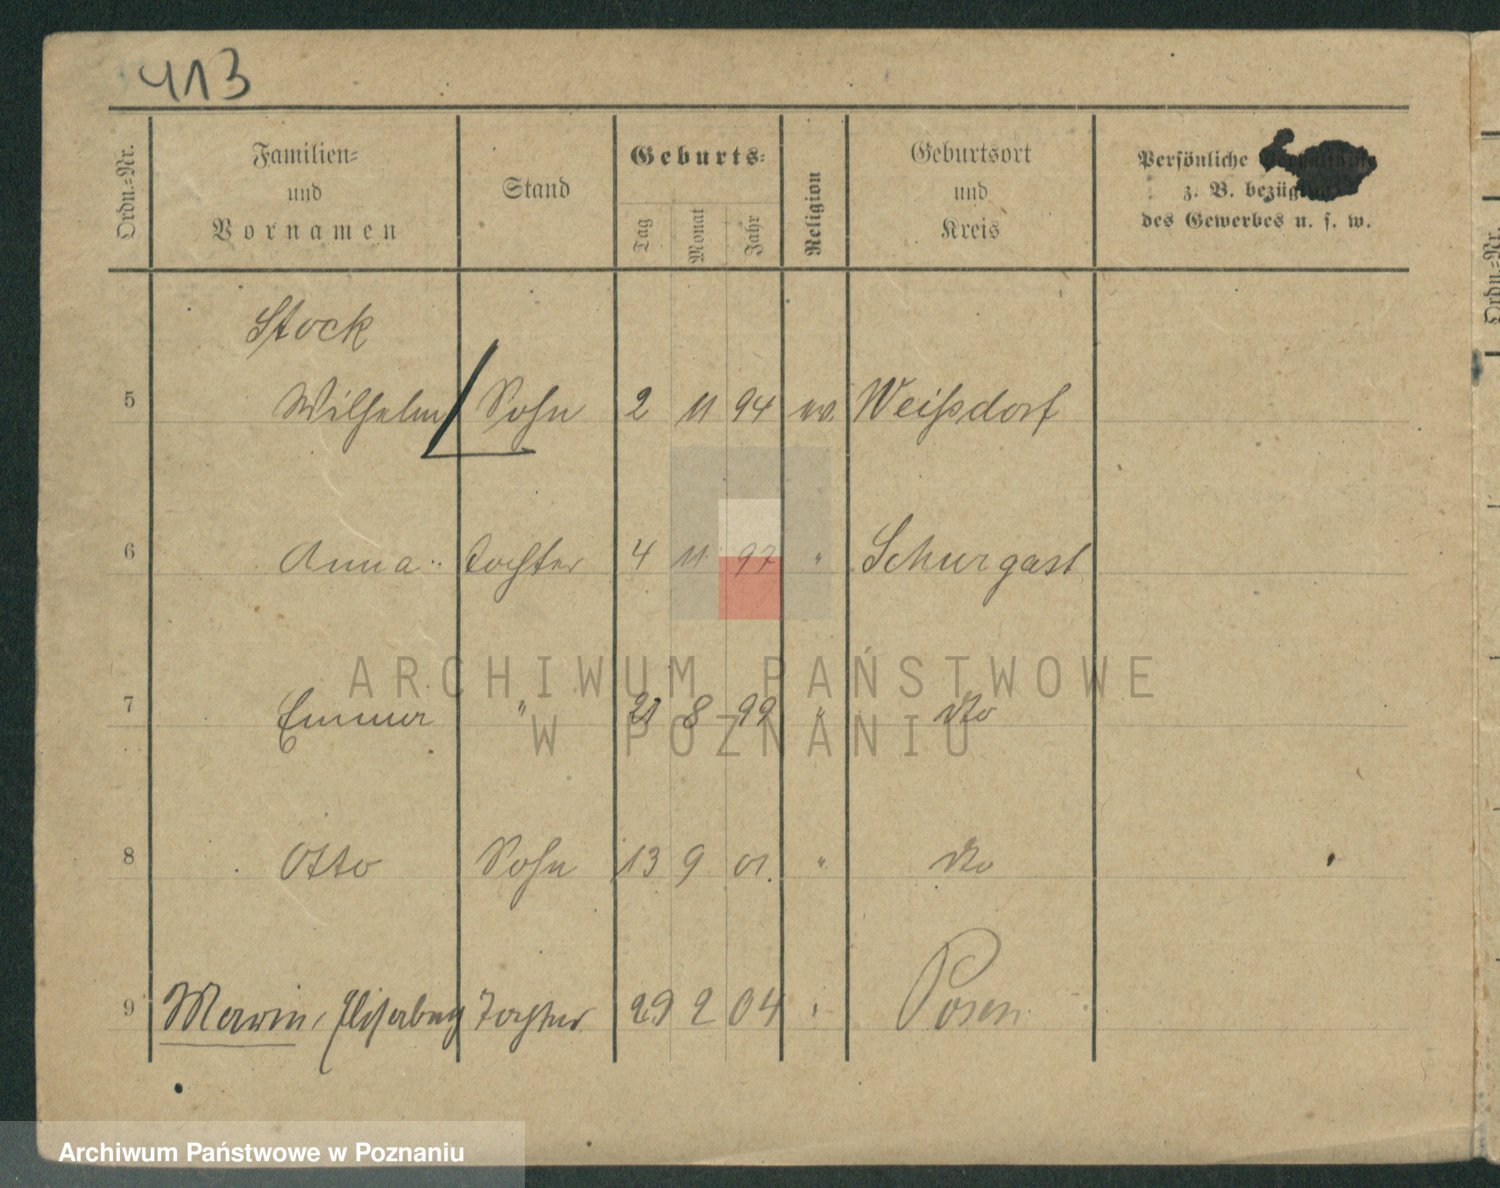 413
Ordn.-Nr.
Familien-
und
Vornamen
Stand
Geburts-
Tag
Monat
Jahr
Religion
Geburtsort
und
Kreis
Persönliche
z. B. bezüg
des Gewerbes u. s. w.
Stock
5 Wilhelm Sohn 2 11 94 ev. Weißdorf
6 Anna Tochter 4 11 97 " Schurgast
7 Emma " 21 8 99 " dto
8 Otto Sohn 13 9 01. " dto
9 Maria, Elisabeth Tochter 29 2 04 " Posen
Ordn.-Nr.
ARCHIWUM PAŃSTWOWE
W POZNANIU
Archiwum Państwowe w Poznaniu